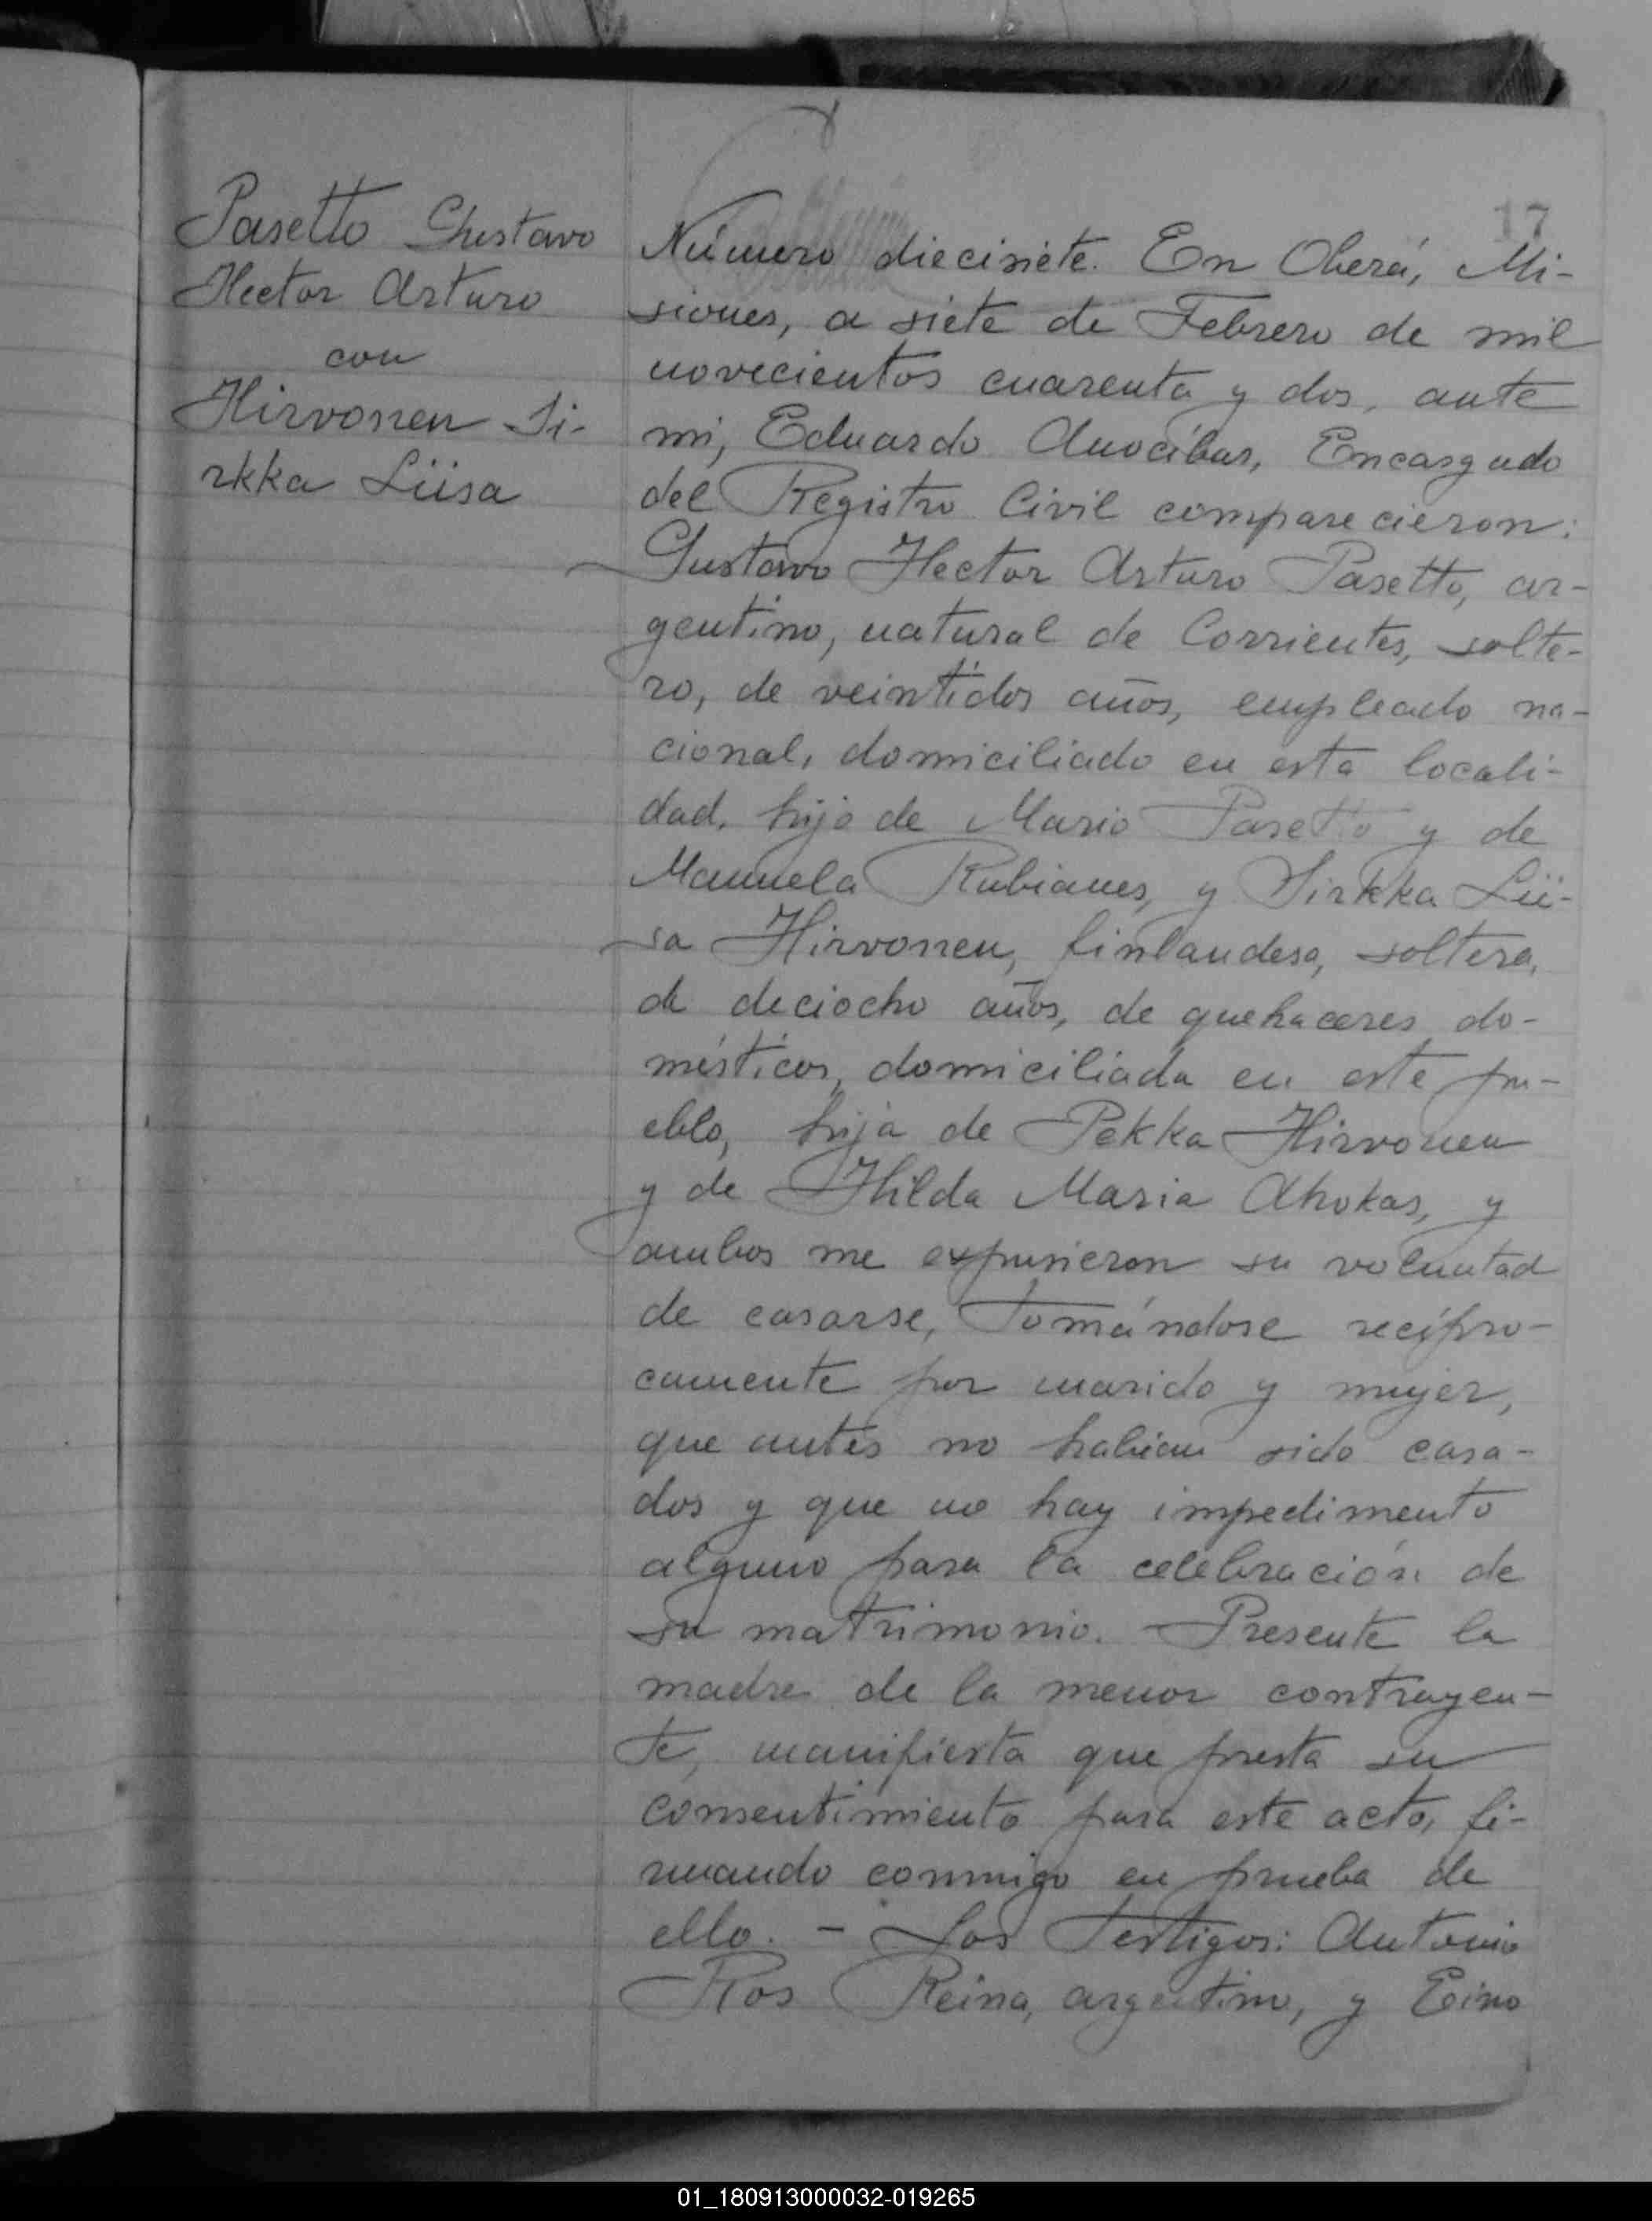 17
Pasetto Gustavo
Hector Arturo
con
Hirvonen Si-
rkka Liisa
Número diecisiete. En Oberá, Mi-
siones, a siete de Febrero de mil
novecientos cuarenta y dos, ante
mi, Eduardo Anocíbar, Encargado
del Registro Civil comparecieron:
Gustavo Hector Arturo Pasetto, ar-
gentino, natural de Corrientes, solte-
ro, de veintidos años, empleado na-
cional, domiciliado en esta locali-
dad, hijo de Mario Pasetto y de
Manuela Rubianes, y Sirkka Lii-
sa Hirvonen, finlandesa, soltera,
de deciocho años, de quehaceres do-
mésticos, domiciliada en este pu-
eblo, hija de Pekka Hirvonen
y de Hilda Maria Ahokas, y
ambos me expusieron su voluntad
de casarse, tomándose recípro-
camente por marido y mujer,
que antes no habian sido casa-
dos y que no hay impedimento
alguno para la celebración de
su matrimonio. Presente la
madre de la menor contrayen-
te, manifiesta que presta su
consentimiento para este acto, fi-
rmando conmigo en prueba de
ello. - Los Testigos: Antonio
Ros Reina, argentino, y Eino
01_180913000032-019265